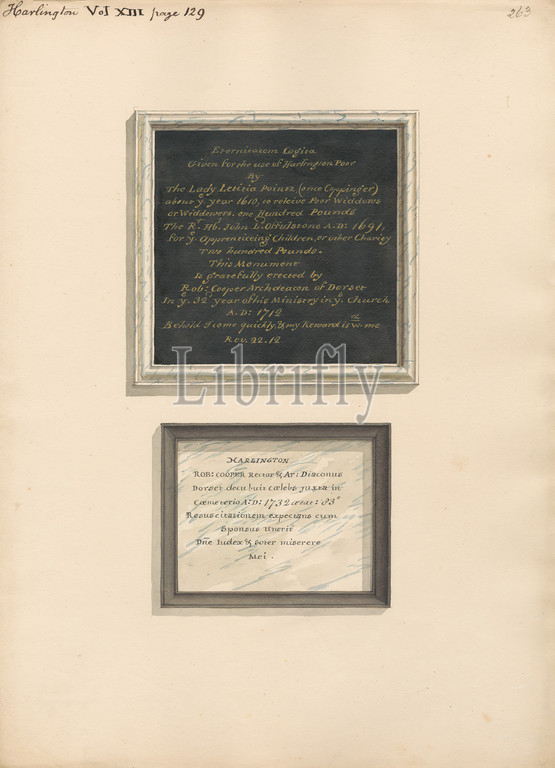 Harlington Vol XIII page 129
263
Eternitatem Cogita
Given for the use of Harlington Poor
By
The Lady Letitia Pointz, (once Coppinger)
about yͤ. year 1610, to releive Poor Widdows
or Widdowers, one Hundred Pounds
The Rᵗ. Hᵇ. John L. Offulstone A.D: 1691,
for yͤ. Apprenticeing Children, or other Charity
Two hundred Pounds.
This Monument
Is gratefully erected by
Rob: Cooper Archdeacon of Dorset
In yͤ. 32 year of his Ministry in yͤ. Church
A.D: 1712
Behold I come quickly, & my Reward is wᵗʰ. me
Rev. 22. 12
Librifly
HARLINGTON
ROB: COOPER Rector & Ar: Diaconus
Dorset decubuit cœlebs juxta in
Cœmeterio A:D: 1732 ætat: 83°
Resuscitationem expectans cum
Sponsus
Dne Iudex & soter miserere
Mei.